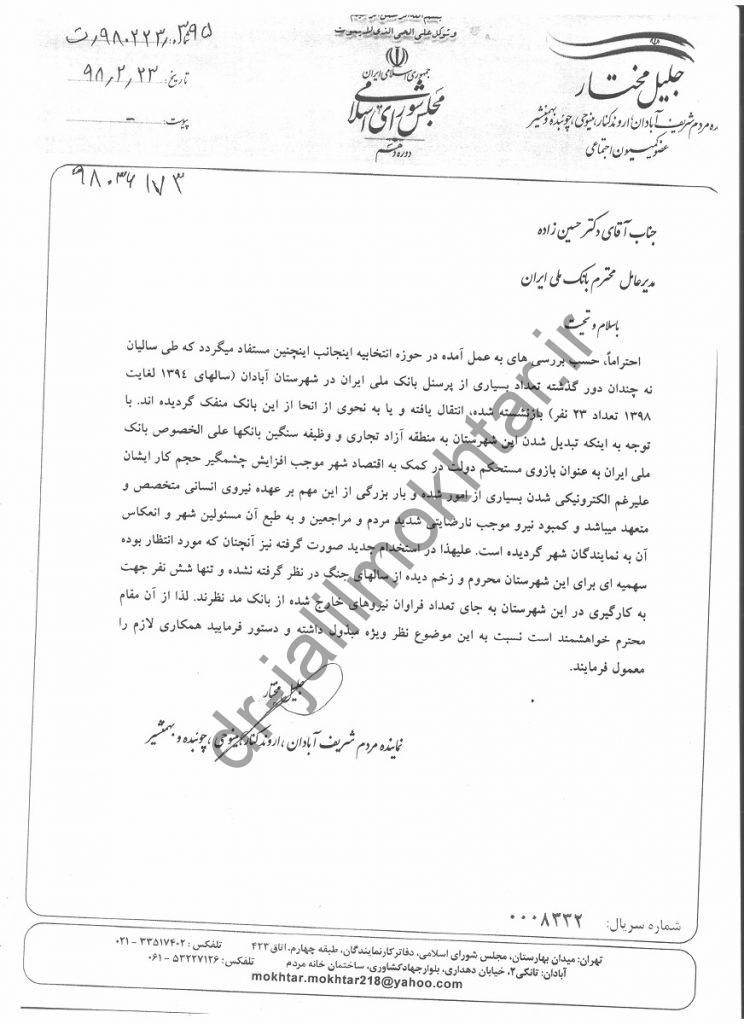 وتوکل علی الحی الذی لا یموت
جمهوری اسلامی ایران
مجلس شورای اسلامی
دوره دهم
شماره: ۹۸۰۲۲۳۰۳۹۵ت
تاریخ: ۹۸٫۲٫۲۳
پیوست: -
جلیل مختار
مردم شریف آبادان، اروندکنار، مینوحی، چوئبده و بهمنشیر
عضو کمیسیون اجتماعی
جناب آقای دکتر حسین زاده
مدیرعامل محترم بانک ملی ایران
باسلام و تحیت
احتراماً، حسب بررسی های به عمل آمده در حوزه انتخابیه اینجانب اینچنین مستفاد میگردد که طی سالیان
نه چندان دور گذشته تعداد بسیاری از پرسنل بانک ملی ایران در شهرستان آبادان (سالهای ۱۳۹۴ لغایت
۱۳۹۸ تعداد ۲۳ نفر) بازنشسته شده، انتقال یافته و یا به نحوی از انحا از این بانک منفک گردیده اند. با
توجه به اینکه تبدیل شدن این شهرستان به منطقه آزاد تجاری و وظیفه سنگین بانکها علی الخصوص بانک
ملی ایران به عنوان بازوی مستحکم دولت در کمک به اقتصاد شهر موجب افزایش چشمگیر حجم کار ایشان
علیرغم الکترونیکی شدن بسیاری از امور شده و بار بزرگی از این مهم بر عهده نیروی انسانی متخصص و
متعهد میباشد و کمبود نیرو موجب نارضایتی شدید مردم و مراجعین و به طبع آن مسئولین شهر و انعکاس
آن به نمایندگان شهر گردیده است. علیهذا در استخدام جدید صورت گرفته نیز آنچنان که مورد انتظار بوده
سهمیه ای برای این شهرستان محروم و زخم دیده از سالهای جنگ در نظر گرفته نشده و تنها شش نفر جهت
به کارگیری در این شهرستان به جای تعداد فراوان نیروهای خارج شده از بانک مد نظرند. لذا از آن مقام
محترم خواهشمند است نسبت به این موضوع نظر ویژه مبذول داشته و دستور فرمایید همکاری لازم را
معمول فرمایند.
جلیل مختار
نماینده مردم شریف آبادان، اروندکنار، مینوحی، چوئبده و بهمنشیر
dr-jalilmokhtar.ir
شماره سریال: ۰۰۰۸۳۳۲
تهران: میدان بهارستان، مجلس شورای اسلامی، دفاتر کار نمایندگان، طبقه چهارم، اتاق ۴۲۳ تلفکس: ۳۳۵۱۷۴۰۲ - ۰۲۱
آبادان: تانکی۲، خیابان دهداری، بلوار جهاد کشاورزی، ساختمان خانه مردم تلفکس: ۵۳۲۲۷۱۲۶ - ۰۶۱
mokhtar.mokhtar218@yahoo.com